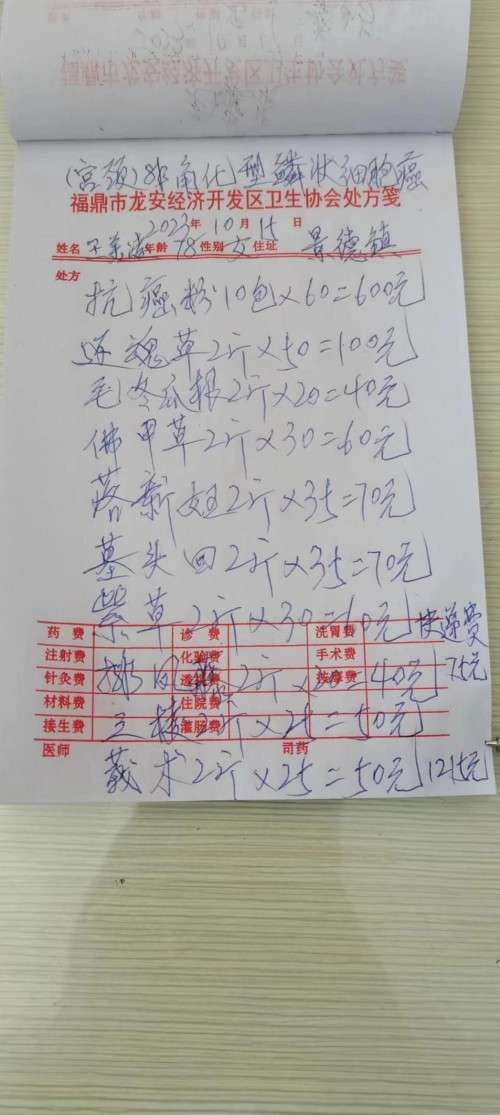 (宫颈)非角化型鳞状细胞癌
福鼎市龙安经济开发区卫生协会处方笺
2023年10月15日
姓名 年龄 78 性别 女 住址 景德镇
处方
抗癌粉10包×60=600元
返魂草2斤×50=100元
毛冬瓜根2斤×20=40元
佛甲草2斤×30=60元
落新妇2斤×35=70元
墓头回2斤×35=70元
紫草2斤×30=60元 快递费
药费 诊费 洗胃费
注射费 化验费 手术费
75元
排风 2斤×20=40元
针灸费 透视费 按摩费
材料费 住院费
三棱2斤×25=50元
接生费 灌肠费
医师 司药
莪术2斤×25=50元 1215元